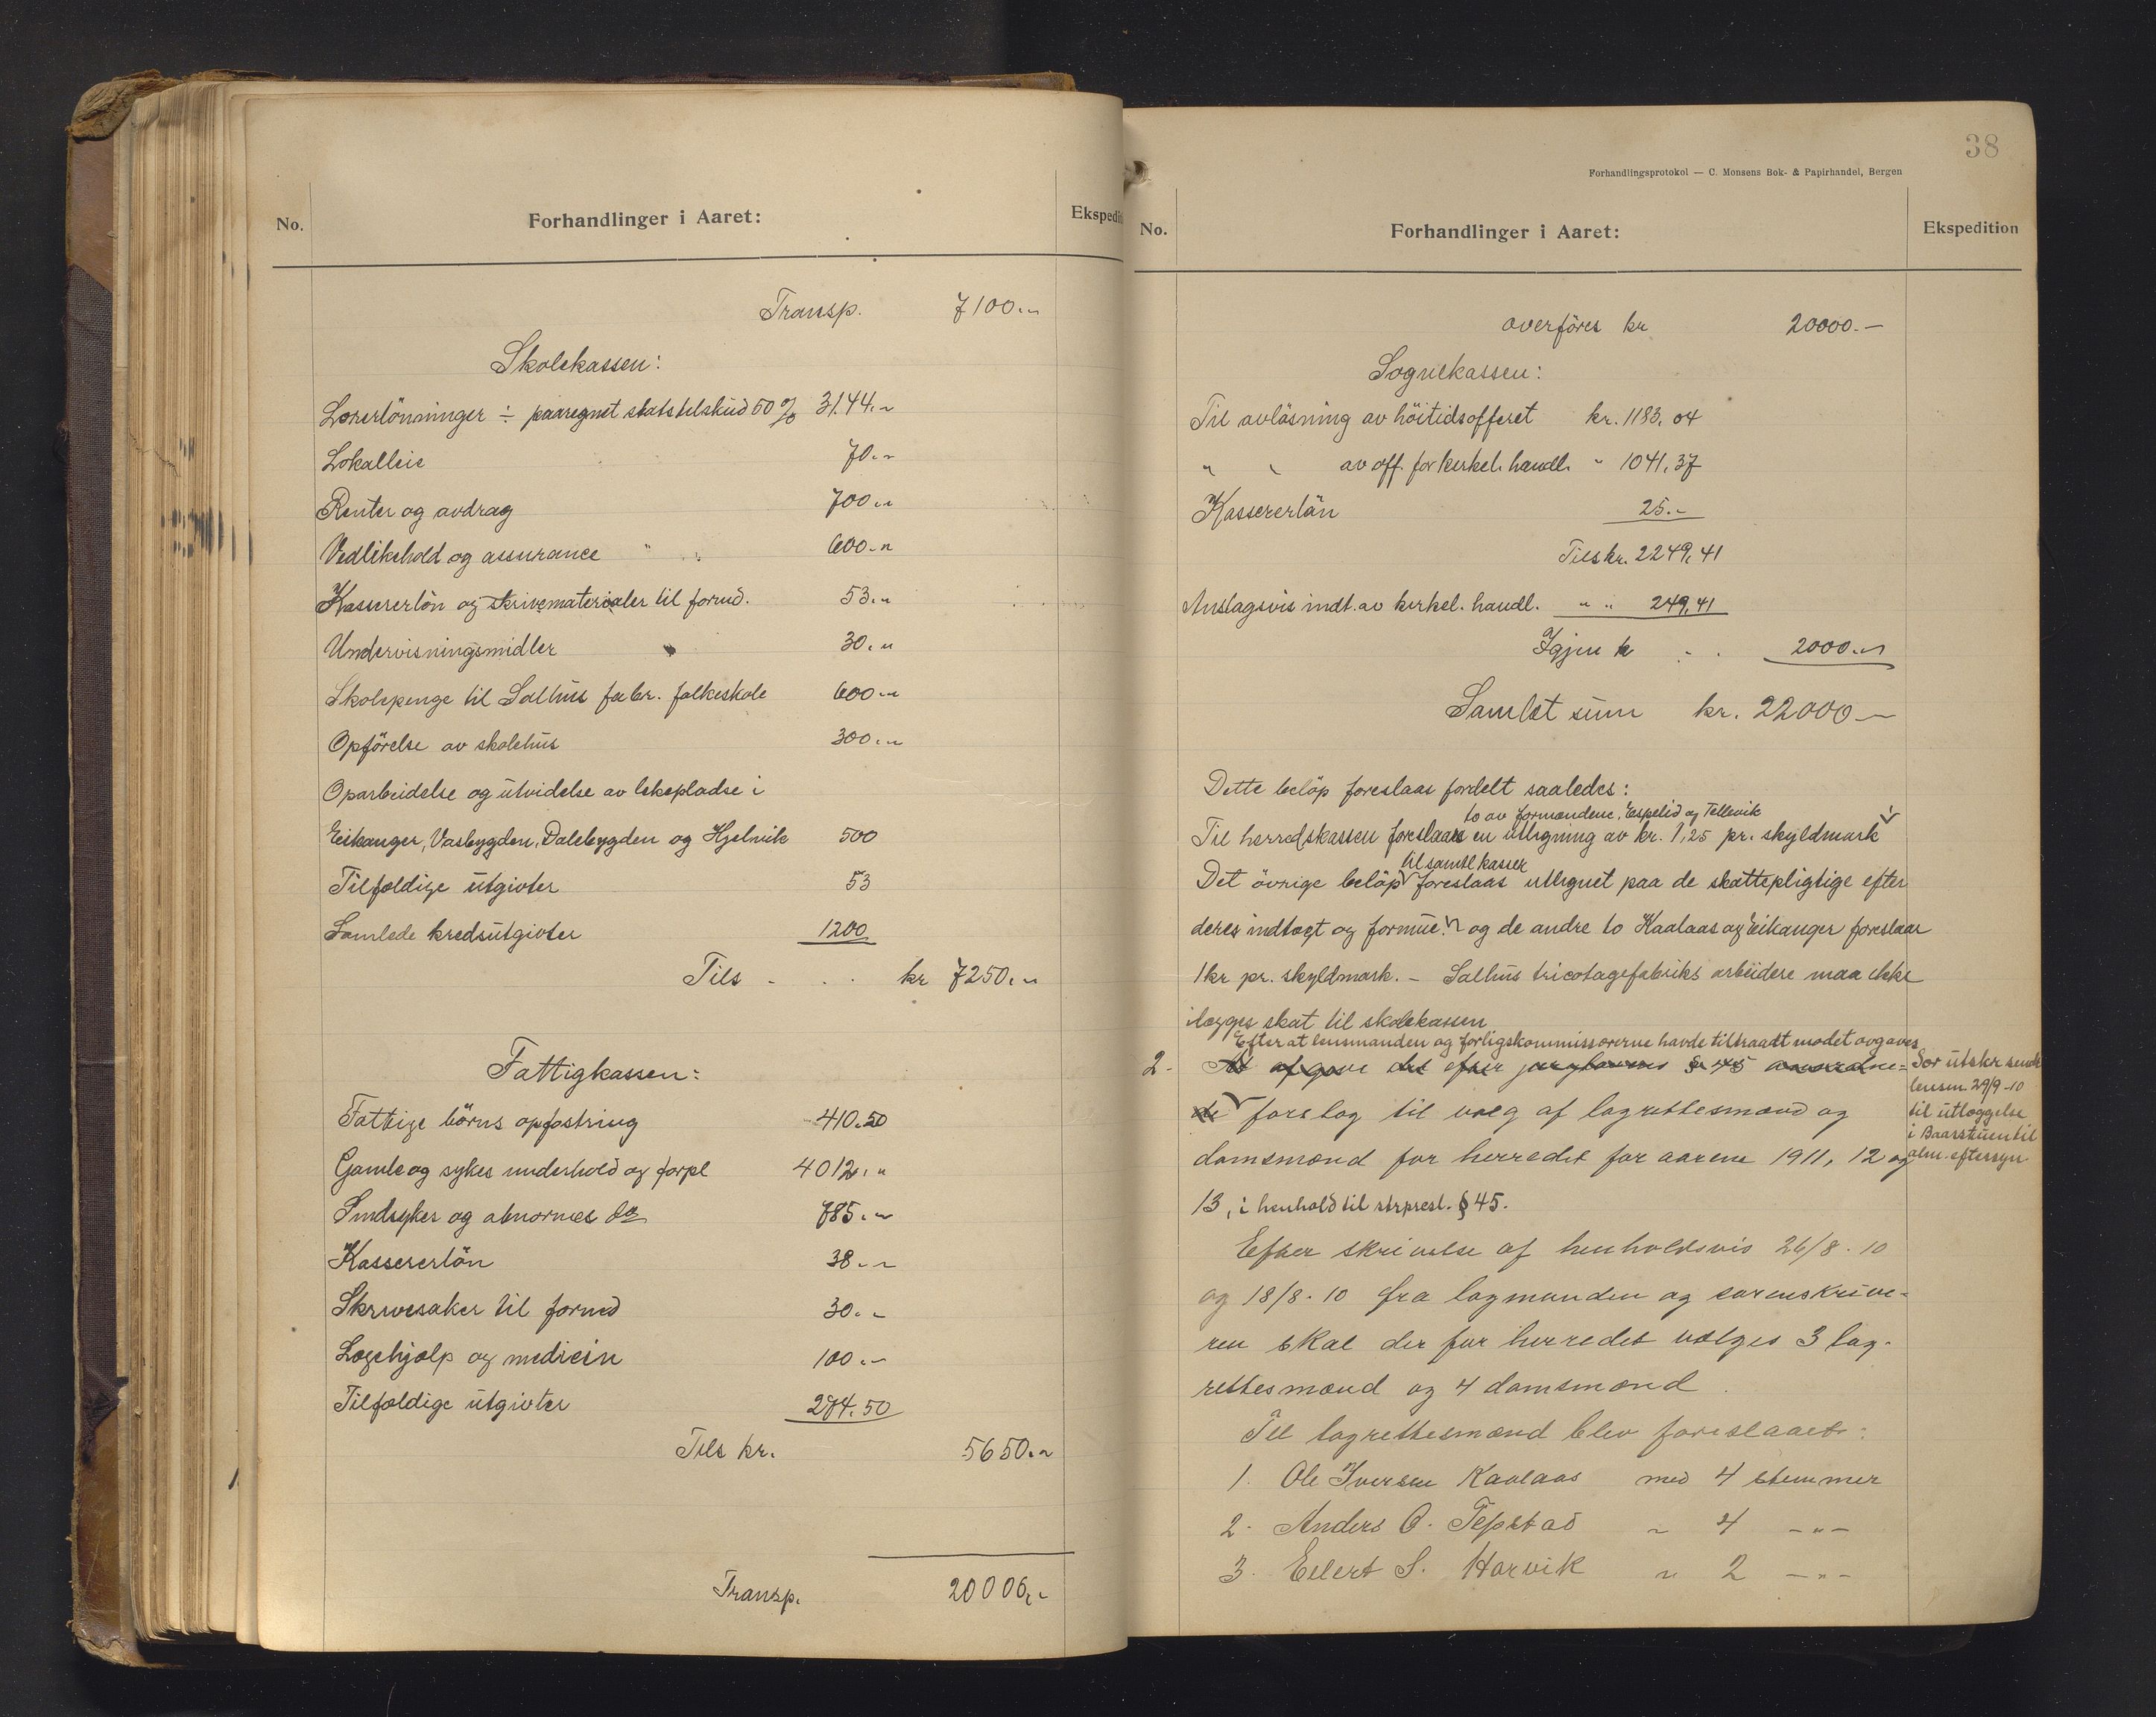 No.
Forhandlinger i Aaret:
Ekspedit
Transp. 7100.„
Skolekassen:
Lærerlönninger ÷ paaregnet statstilskud 50 % 3144.„
Lokalleie 70.„
Renter og avdrag 700.„
Vedlikehold og assurance 600.„
Kassererlön og skrivematerialer til forud. 53.„
Undervisningsmidler 30.„
Skolepenge til Salhus fabr. folkeskole 600.„
Opförelse av skolehus 300.„
Oparbeidelse og utvidelse av lekepladse i
Eikanger, Vasbygden, Dalebygden og Hjelmvik 500
Tilfældige utgivter 53
Samlede kredsutgivter 1200
Tils - . . kr 7250.„
Fattigkassen:
Fattige börns opfostring 410.50
Gamle og sykes underhold og forpl 4012.„
Sindsykes og abnormes do 785.„
Kassererlön 38.„
Skrivesaker til formd 30.„
Lægehjælp og medicin 100.„
Tilfældige utgivter 274.50
Tils kr. 5650.„
Transp. 20000.„
38
Forhandlingsprotokol — C. Monsens Bok- & Papirhandel, Bergen
No.
Forhandlinger i Aaret:
Ekspedition
overföres kr 20000.—
Sognekassen:
Til avlösning av höitidsofferet kr. 1183,04
„ „ av off. for kirkel. handl. „ 1041,37
Kassererlön 25.-
Tils kr. 2249,41
Anslagsvis indt. av kirkel. handl. „ „ 249,41
Igjen kr . . 2000.„
Samlet sum kr. 22000—
Dette belöp foreslaas fordelt saaledes:
to av formændene, Espelid og Tellevik
Til herredskassen foreslaar en utligning av kr. 1,25 pr. skyldmark
til samtl kasser
Det övrige belöp foreslaas utlignet paa de skattepligtige efter
deres indtægt og formue. og de andre to Kaalaas og Eikanger foreslaar
1 kr pr. skyldmark. – Salhus tricotagefabriks arbeidere maa ikke
ilægges skat til skolekassen
Efter at lensmanden og forligskommissærerne havde tiltraadt mødet avgaves
2. At afgive det efter jurylovens § 45 anordne-
de forslag til valg af lagrettesmænd og
domsmænd for herredet for aarene 1911, 12 og
13, i henhold til strprosl. § 45.
Sor utskr sendt
lensm. 29/9-10
til utlæggelse
i Baarstuen til
alm. eftersyn
Efter skrivelse af henholdsvis 26/8.10
og 18/8.10 fra lagmanden og sorenskrive-
ren skal der for herredet vælges 3 lag-
rettesmænd og 4 domsmænd.
Til lagrettesmænd blev foreslaaet:
1. Ole Iversen Kaalaas med 4 stemmer
2. Anders O. Tepstad „ 4 —„—
3. Eilert S. Horvik „ 2 —„—